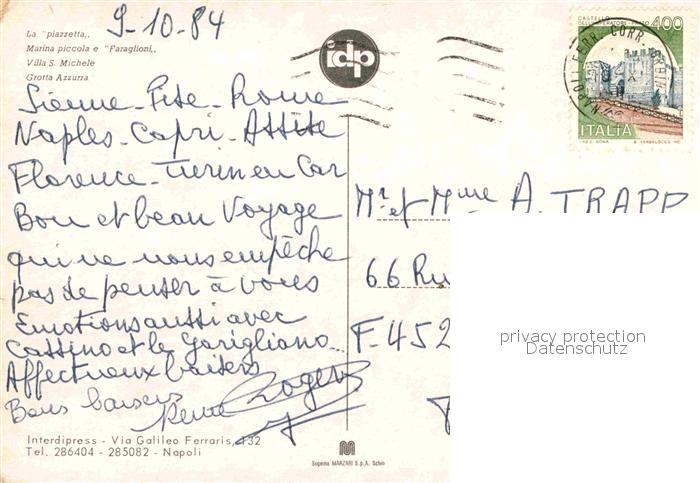 9-10-84
La "piazzetta,,
Marina piccola e "Faraglioni,,
Villa S. Michele
Grotta Azzurra
idp
CASTELLO
DELL'IMPERATORE PRATO 400
ITALIA
Sienne - Pise - Rome
Naples - Capri - Assise
Florence - Turin en Car
Bon et beau Voyage
qui ne nous empêche
pas de penser à vous
Emotions aussi avec
Cassino et le Garigliano
Affectueux baisers
Bons baisers
Roger
Mr et Mme A. TRAPP
66 Ru
F-452
privacy protection
Datenschutz
Interdipress - Via Galileo Ferraris, 132
Tel. 286404 - 285082 - Napoli
Suprema MARZARI S.p.A. Schio